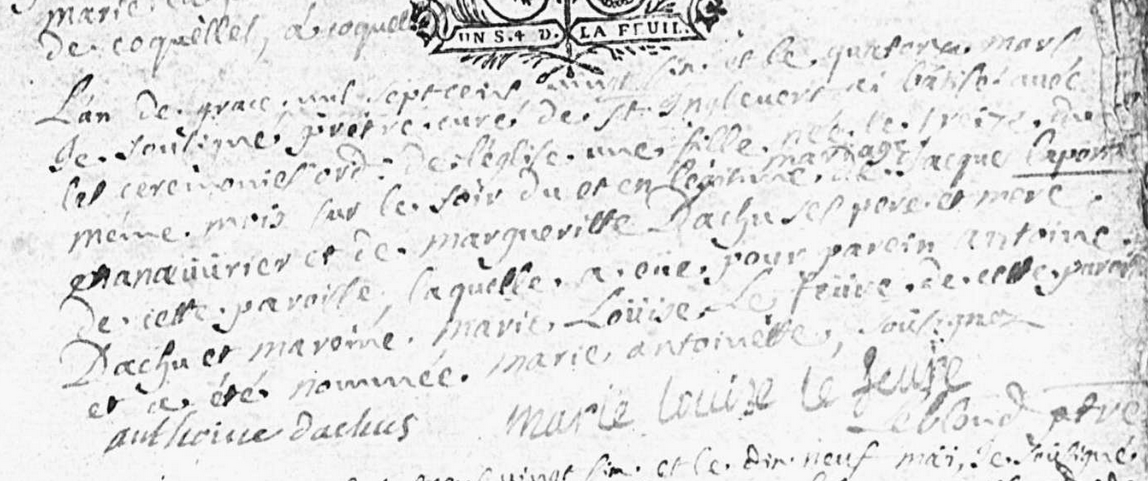 marie
de coquellel, a coquell
UN S. 4 D. LA FEUIL.
L'an de grace mil sept cent vingt six et le quatorze mars
Je sousigné prêtre curé de st Inglevert ai batisé avec
les ceremonies ord: de l'église une fille née le treize du
même mois sur le soir du et en légitime mariage de Jacque Laporte
manauürier et de margueritte Dachu ses pere et mere
de cette paroisse, laquelle a eüe pour parein antoine
Dachu et mareine marie Loüise Le feüvre de cette paroi
et a été nommée marie antoinette, soüsignez
anthoine dachus marie louise le feuvre
Leblond ptre
vingt six et le dix neuf mai, Je soüsigné